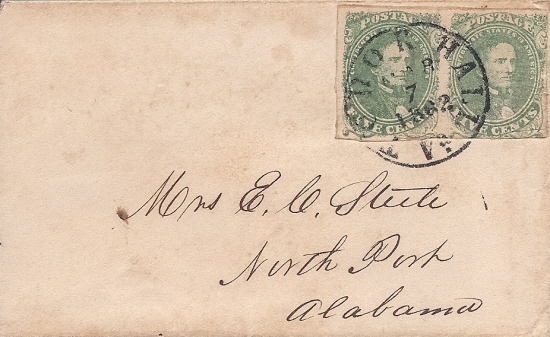 POSTAGE POSTAGE
FIVE CENTS FIVE CENTS
TUDOR HALL
VA.
7
1862
Mrs E. C. Steele
North Port
Alabama